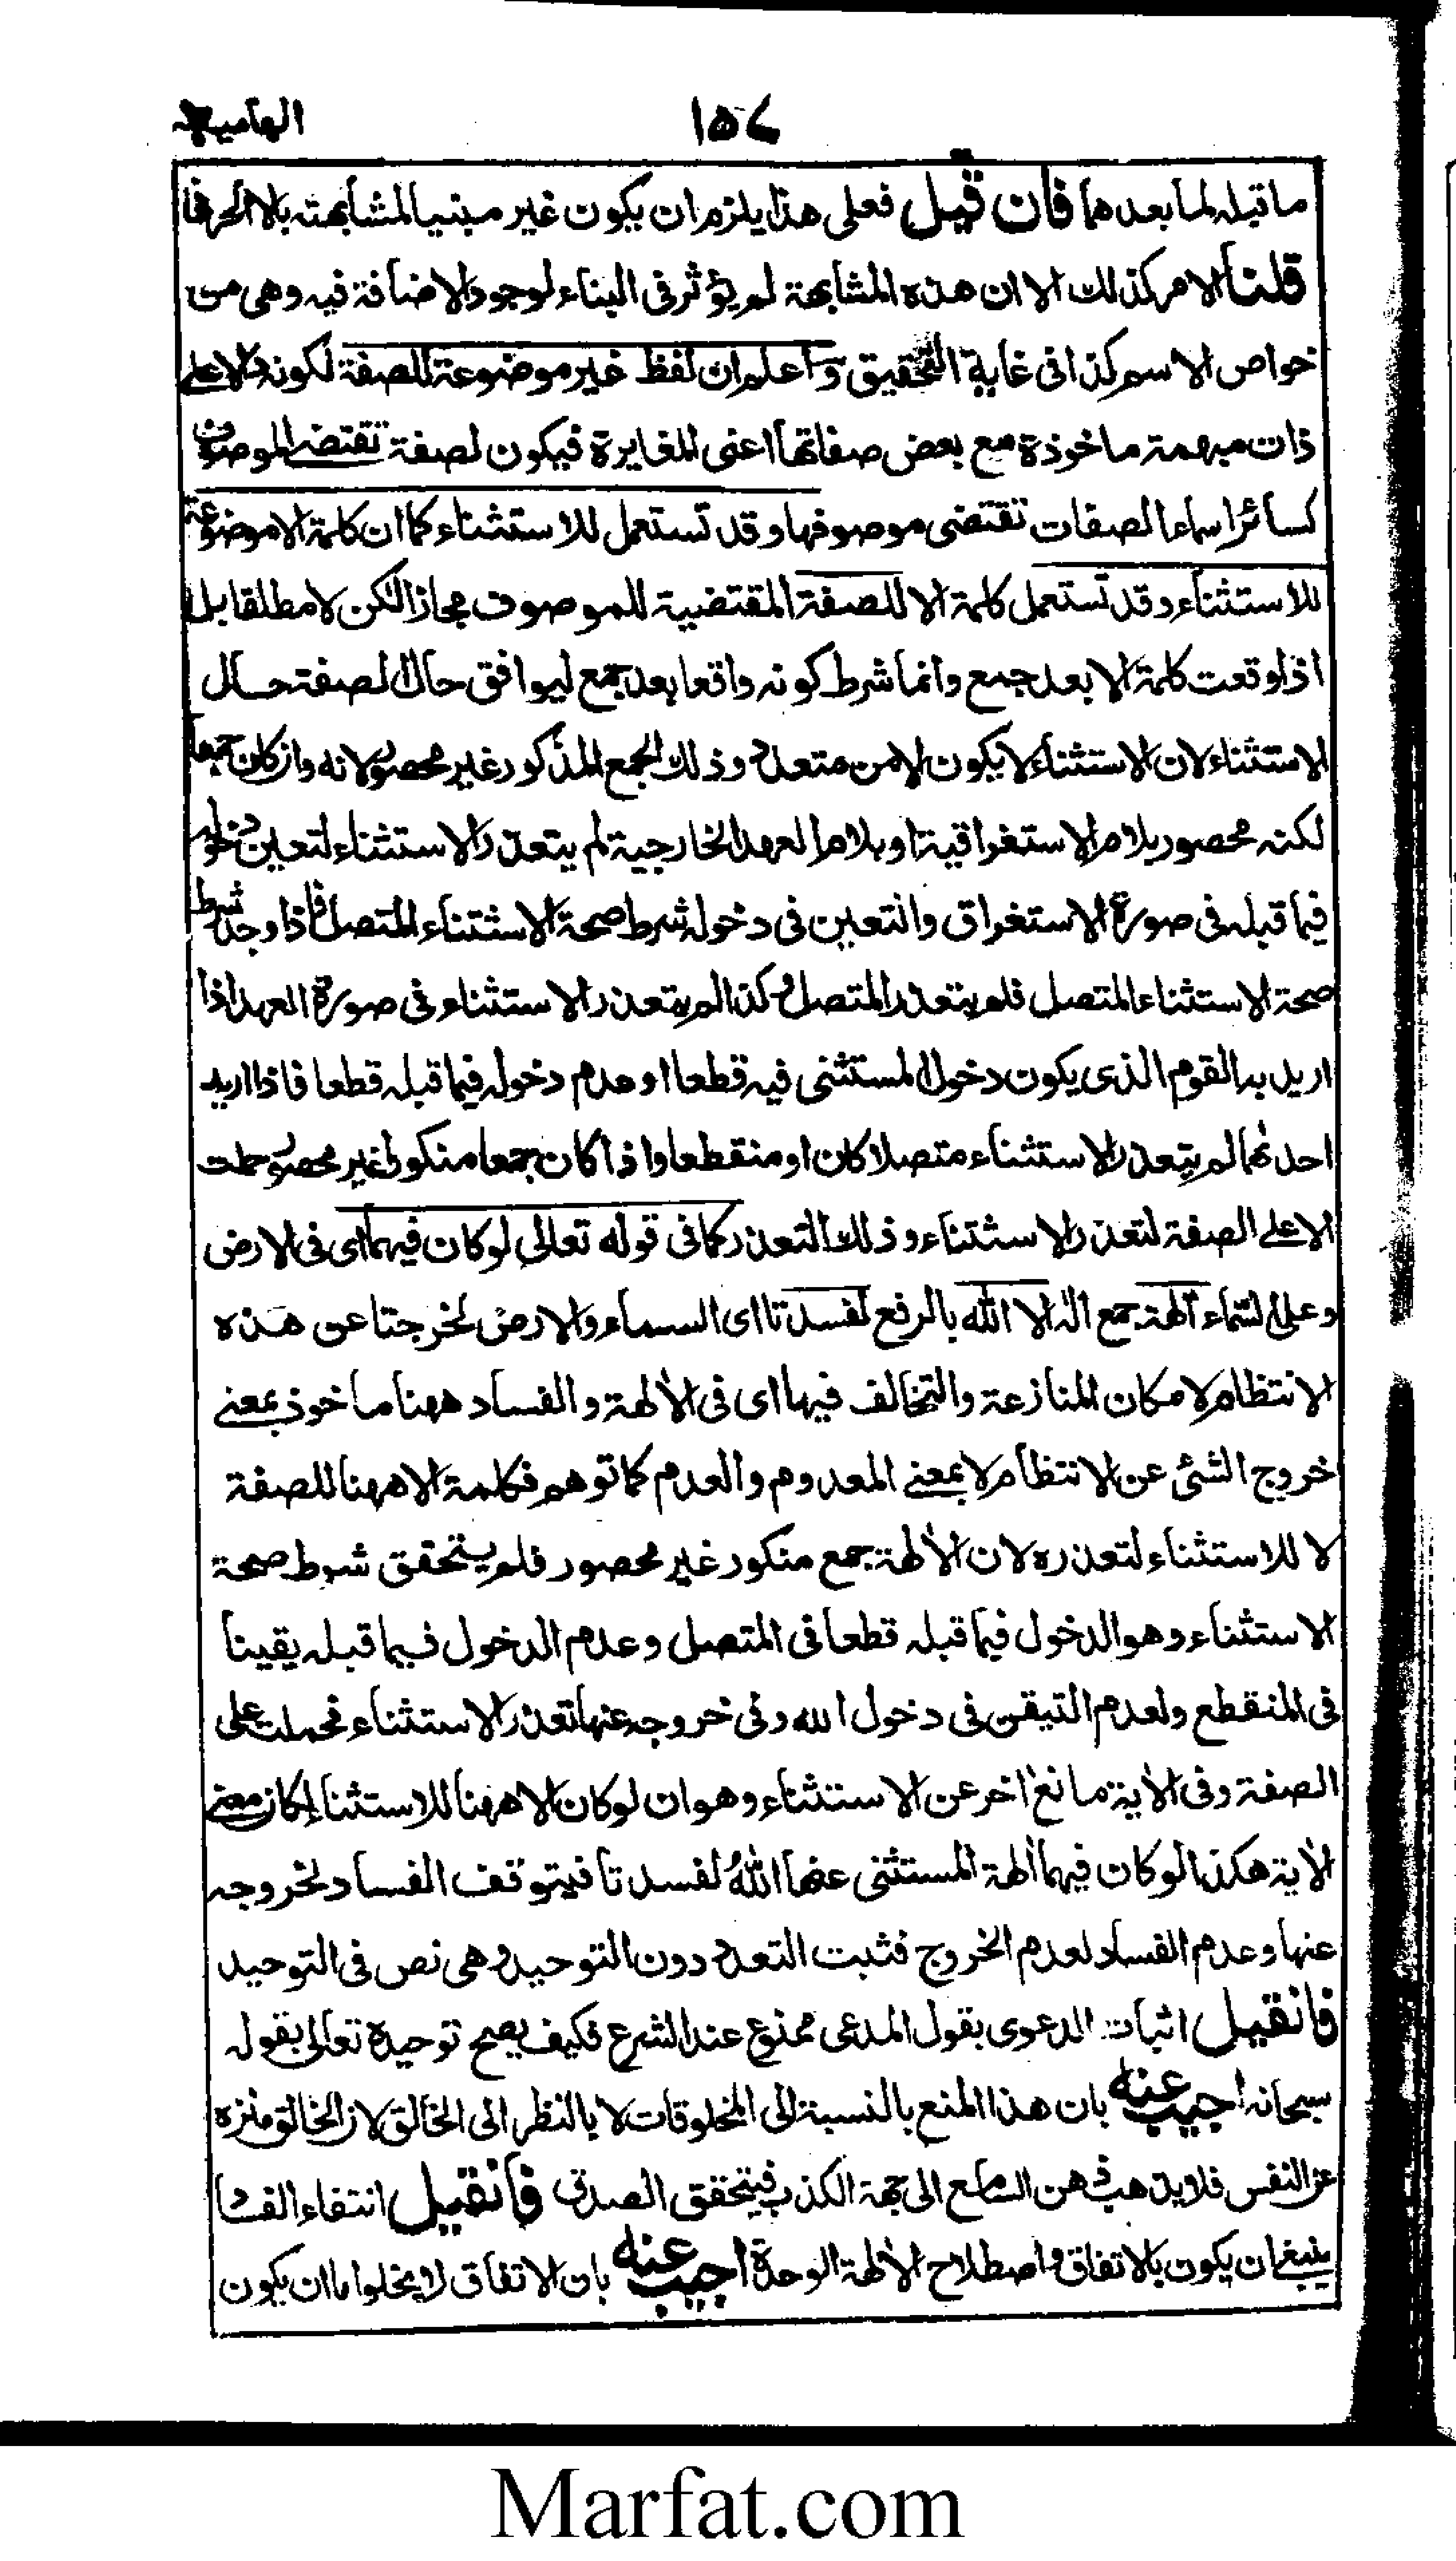 ١٥٧
الهامية
ما قبله لما بعدهما فان قيل فعلى هذا يلزم ان يكون غير مبنيا لمشابهته بالا الحرف
قلنا الامر كذلك الا ان هذه المشابهة لم يؤثر فى البناء لوجود الاضافة فيه وهى من
خواص الاسم كذا فى غاية التحقيق واعلم ان لفظ غير موضوعة للصفة لكونه دالا على
ذات مبهمة ماخوذة مع بعض صفاتها اعنى المغايرة فيكون لصفة تقتضى الموصوف
كسائر اسماء الصفات تقتضى موصوفها وقد تستعمل للاستثناء كما ان كلمة الا موضوعة
للاستثناء وقد تستعمل كلمة الا للصفة المقتضية للموصوف مجازا لكن لا مطلقا بل
اذا وقعت كلمة الا بعد جمع وانما شرط كونه واقعا بعد جمع ليوافق حال الصفة حال
الاستثناء لان الاستثناء لا يكون الا من متعدد وذلك الجمع المذكور غير محصور لانه وان كان جمعا
لكنه محصور بلام الاستغراقية او بلام العهد الخارجية لم يتعذر الاستثناء لتعين دخوله
فيما قبله فى صورة الاستغراق والتعين فى دخوله شرط صحة الاستثناء المتصل فاذا وجد شرط
صحة الاستثناء المتصل فلم يتعذر المتصل وكذا لم يتعذر الاستثناء فى صورة العهد اذا
اريد به القوم الذى يكون دخول المستثنى فيه قطعا او عدم دخوله فيما قبله قطعا فاذا اريد
احدهما لم يتعذر الاستثناء متصلا كان او منقطعا واذا كان جمعا منكورا غير محصور حملت
الا على الصفة لتعذر الاستثناء وذلك التعذر كما فى قوله تعالى لو كان فيهما اى فى الارض
وعلى السماء آلهة جمع اله الا الله بالرفع لفسدتا اى السماء والارض لخرجتا عن هذه
الانتظام لامكان المنازعة والتخالف فيها اى فى الآلهة والفساد ههنا ماخوذ بمعنى
خروج الشئ عن الانتظام لا بمعنى المعدوم والعدم كما توهم فكلمة الا ههنا للصفة
لا للاستثناء لتعذره لان الآلهة جمع منكور غير محصور فلم يتحقق شرط صحة
الاستثناء وهو الدخول فيما قبله قطعا فى المتصل وعدم الدخول فيما قبله يقينا
فى المنقطع ولعدم التيقن فى دخول الله وفى خروجه عنها تعذر الاستثناء فحملت على
الصفة وفى الآية مانع آخر عن الاستثناء وهو ان لو كان الا ههنا للاستثناء لكان معنى
الآية هكذا لو كان فيهما آلهة المستثنى عنها الله لفسدتا فيتوقف الفساد لخروجه
عنها وعدم الفساد لعدم الخروج فثبت التعدد دون التوحيد وهى نص فى التوحيد
فانقيل اثبات الدعوى بقول المدعى ممنوع عند الشرع فكيف يصح توحيدة تعالى بقوله
سبحانه اجيب عنه بان هذا المنع بالنسبة الى المخلوقات لا بالنظر الى الخالق لان الخالق منزه
عن النفس فلا يذهب ذهن السامع الى جهة الكذب فيتحقق الصدق فانقيل انتفاء الفساد
ينبغى ان يكون بالاتفاق واصطلاح الآلهة الوحدة اجيب عنه بان الاتفاق لا يخلوا ما ان يكون
Marfat.com